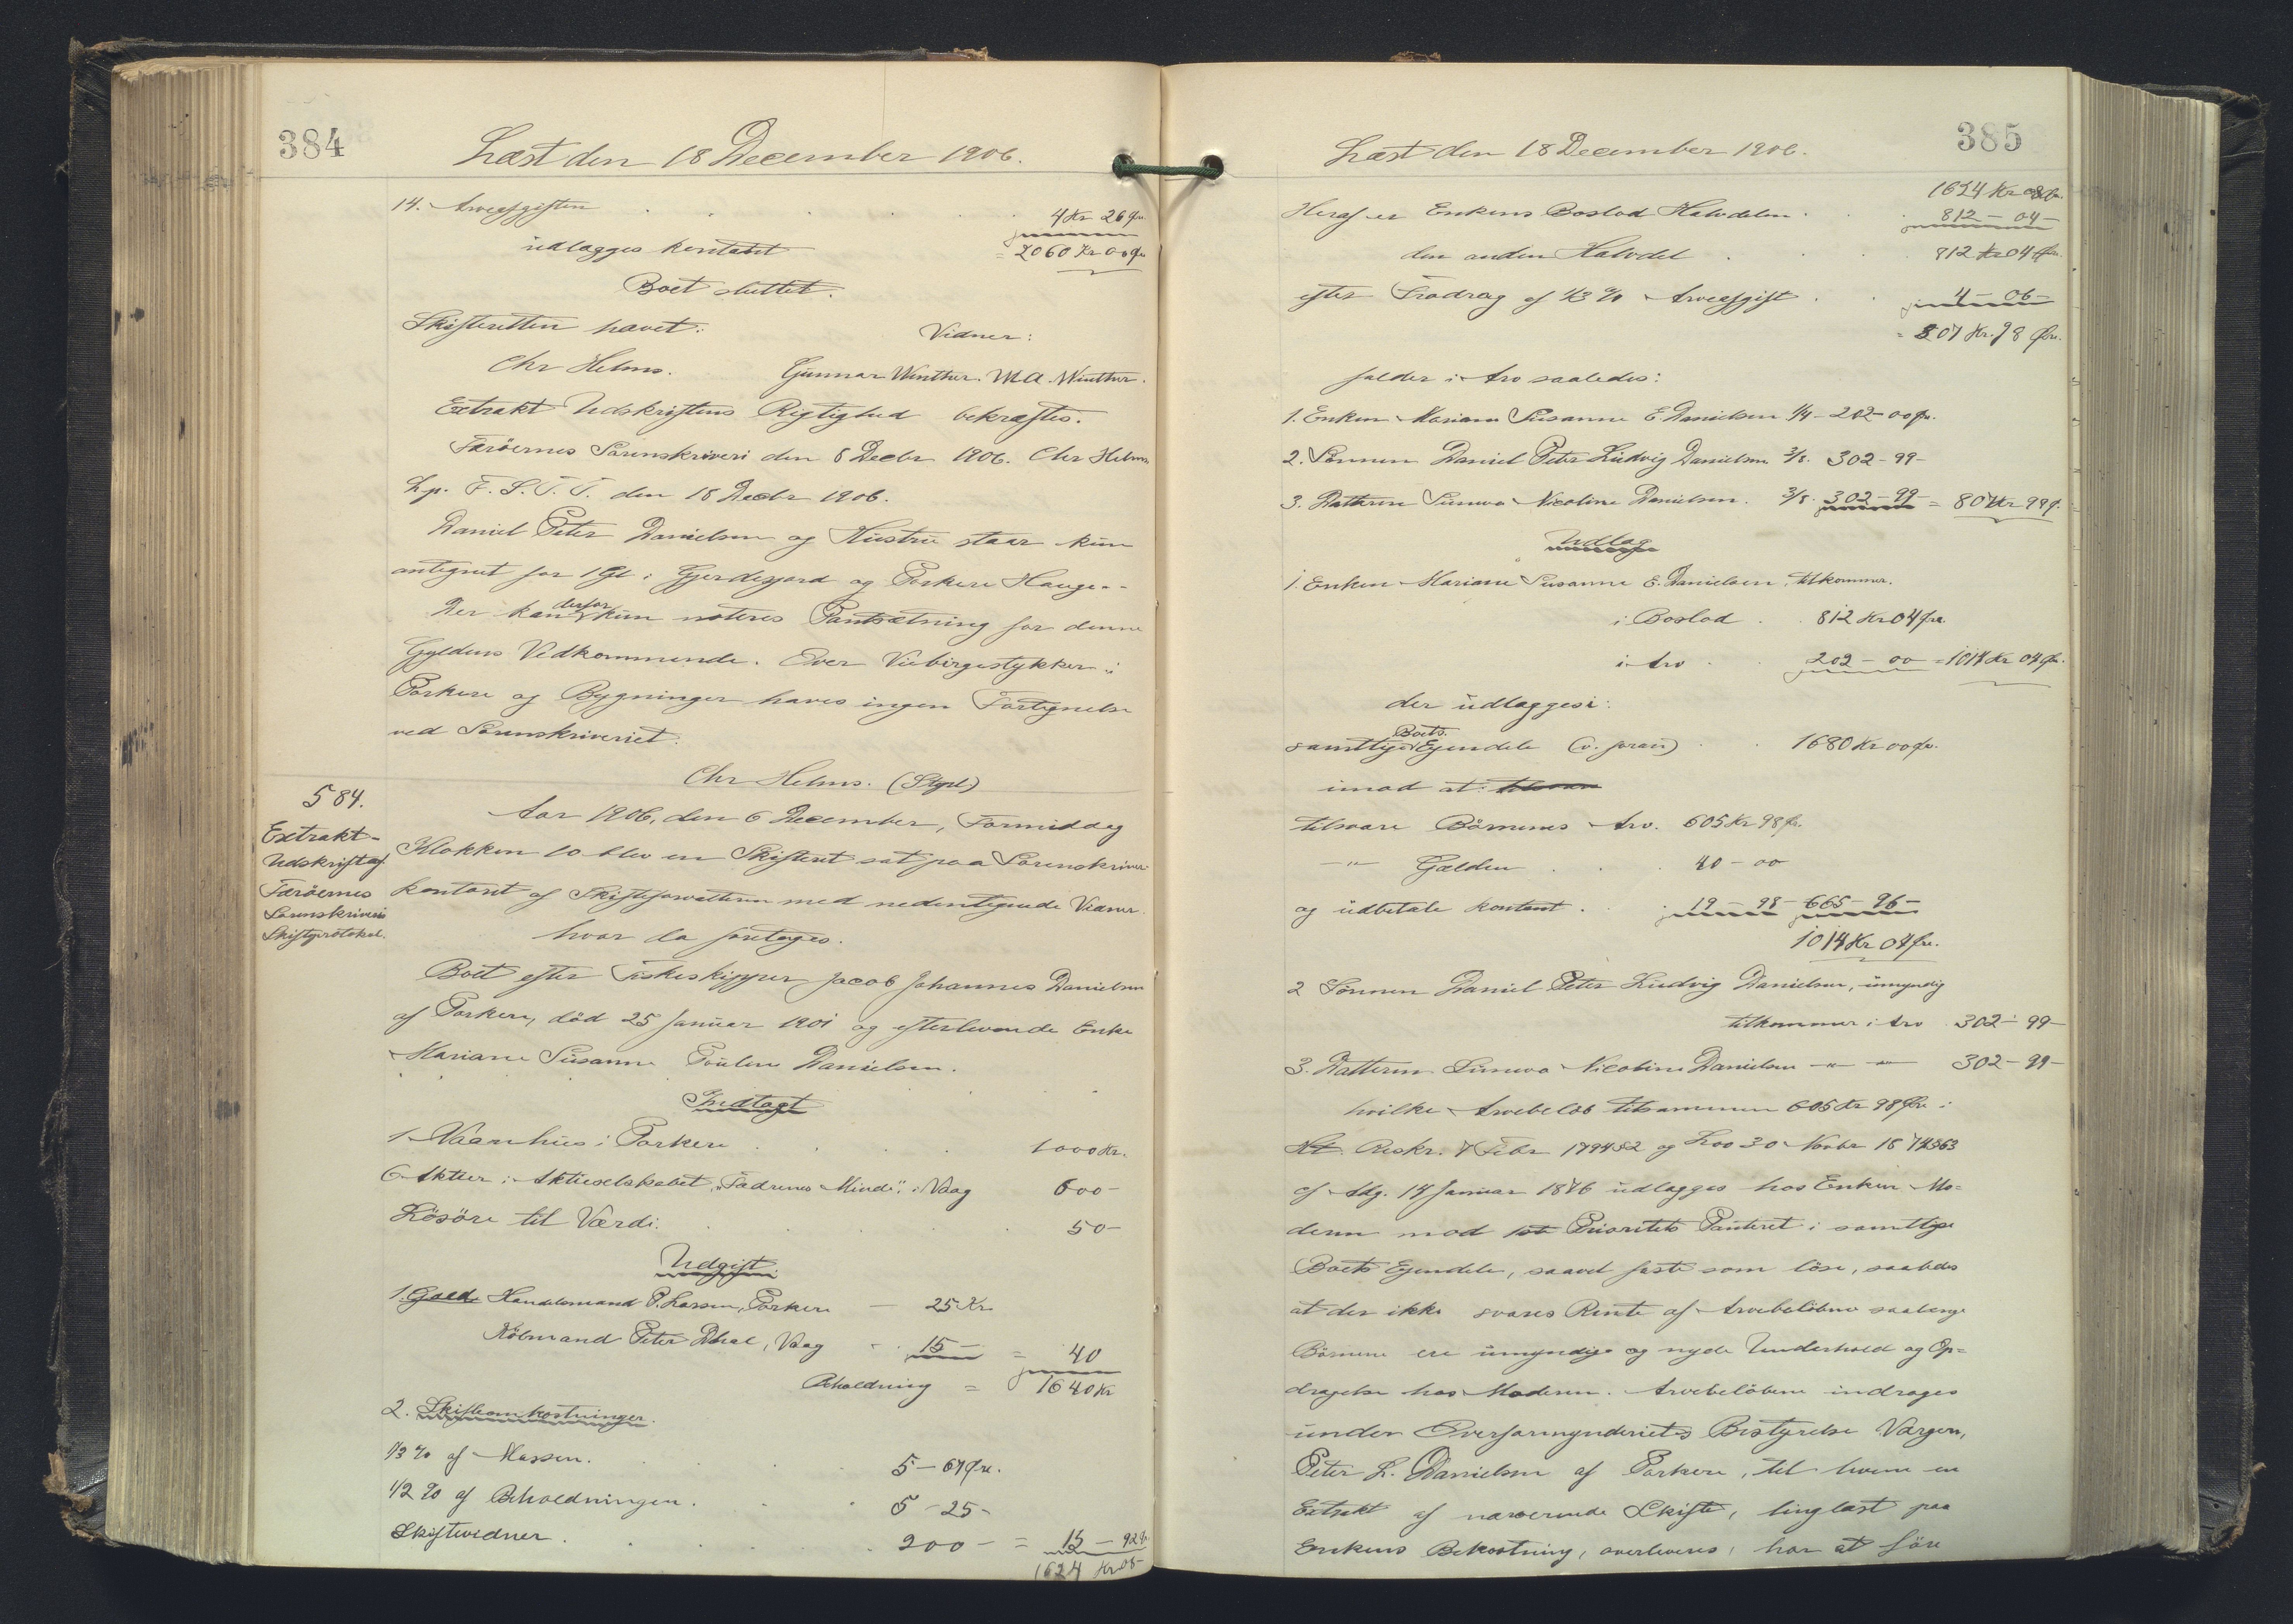 384
Læst den 18 December 1906.
14. Arveafgiften . . . . 4 Kr 26 Øre
udlægges kontant = 2060 Kr 00 Øre
Boet sluttet.
Skifteretten hævet:
Vidner:
Chr Helms. Gunnar Winther. M.A. Winther.
Extrakt Udskriftens Rigtighed bekræftes.
Færöernes Sorenskriveri den 8 Decbr 1906. Chr Helms
L.p. F. S. T. T. den 18 Decbr 1906.
Daniel Peter Danielsen og Hustru staar kun
antegnet for 1 Gl i Gjerdegaard og Porkere Hauge.-
Der kan derfor kun noteres Pantsætning for denne
Gyldens Vedkommende. Over Viebirgestykker i
Porkere og Bygninger haves ingen Fortegnelse
ved Sorenskriveriet.
Chr Helms. (Stpl)
584.
Extrakt-
Udskrift af
Færöernes
Sorenskriveris
Skifteprotokol.
Aar 1906, den 6 December, Formiddag
Klokken 10 blev en Skifteret sat paa Sorenskriver
kontoret af Skifteforvalteren med nedentegnede Vidner
hvor da foretoges.
Boet efter Fiskeskipper Jacob Johannes Danielsen
af Porkere, död 25 Januar 1901 og efterlevende Enke
Mariane Susanne Danielsen.
Indtægt
1 Vaanhus i Porkere . . . . 1000 Kr.
6 Aktier i Aktieselskabet "Fædrenes Minde" i Vaag 600 -
Lösöre til Værdi. . . . . 50 -
Udgift
1. Gæld. Handelsmand P. Larsen, Porkere — 25 Kr
Köbmand Peter Dhal, Vaag - 15 - = 40
Beholdning = 1640 Kr
2. Skifteomkostninger.
1/3 % af Massen. . . . 5 - 67 Øre.
1/2 % af Beholdningen. . . 5 - 25 -
Skiftevidner . . . . 200 - = 15 - 92 Ør
1624 Kr 08 -
385
Læst den 18 December 1906.
1624 Kr 08 Ør.
Heraf er Enkens Boslod Halvdelen . . 812 - 04 -
den anden Halvdel . . . 812 Kr 04 Øre.
efter Fradrag af 1/3 % Arveafgift . . 4 - 06 -
= 807 Kr. 98 Øre.
falder i Arv saaledes:
1. Enken Mariane Susanne E. Danielsen 1/4 - 202 - 00 Øre.
2. Sönnen Daniel Peter Ludvig Danielsen 3/8. 302 - 99 -
3. Datteren Sunneva Nicoline Danielsen. 3/8. 302 - 99 - = 807 Kr 98 Ø.
Udlæg
1. Enken Mariane Susanne E. Danielsen, tilkommer.
i Boslod . . 812 Kr 04 Øre.
i Arv . . 202 - 00 = 1014 Kr 04 Øre.
der udlægges i:
samtlige Boets Ejendele (v. foran) . . 1680 Kr 00 Øre.
imod at
tilsvare Börnenes Arv. 605 Kr 98 Øre.
—"— Gælden . . . 40 - 00
og udbetale kontant . . 19 - 98 - 665 - 96 -
1014 Kr 04 Øre.
2 Sönnen Daniel Peter Ludvig Danielsen, umyndig
tilkommer i Arv . 302 - 99 -
3. Datteren Sunneva Nicoline Danielsen —"— —"— 302 - 99 -
hvilke Arvebelöb tilsammen 605 Kr 98 Øre i
Reskr. 7 Febr 1794 § 2 og Lov 30 Novbr 1874 § 63
cf Adg. 14 Januar 1876 udlægges hos Enken Mo-
deren mod 1ste Prioritets Panteret i samtlige
Boets Ejendele, saavel faste som löse, saaledes
at der ikke svares Rente af Arvebelöbene saalænge
Börnene ere umyndige og nyde Underhold og Op-
dragelse hos Moderen. Arvebelöbene inddrages
under Overformynderiets Bestyrelse. Værgen,
Peter L. Danielsen af Porkere, til hvem en
Extrakt af nærværende Skifte, tinglæst paa
Enkens Bekostning, overleveres, har at före